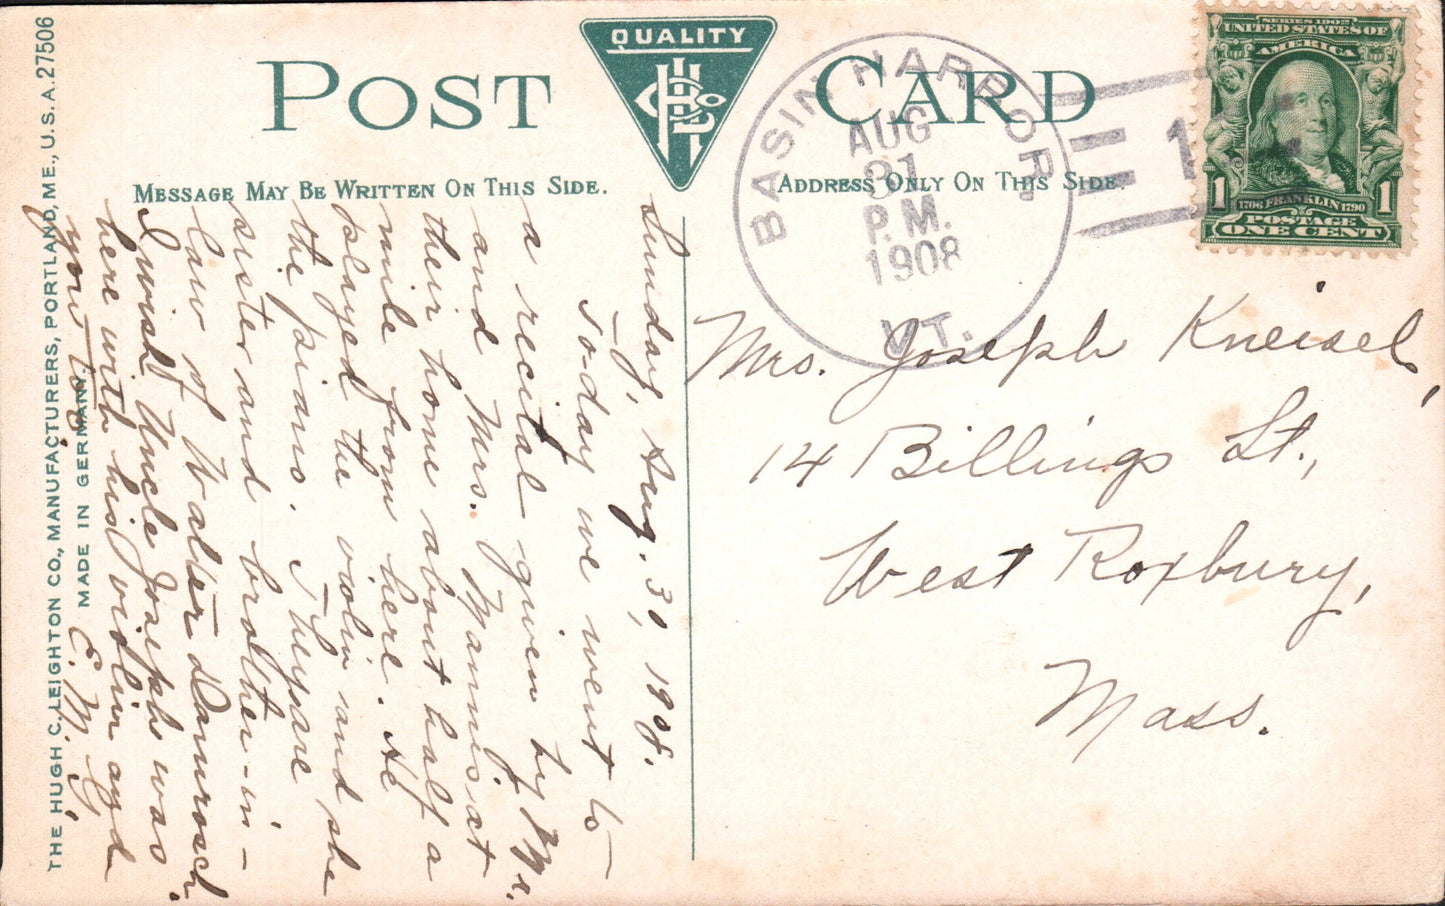 POST CARD
QUALITY
HCL Co
MESSAGE MAY BE WRITTEN ON THIS SIDE.
ADDRESS ONLY ON THIS SIDE.
BASIN HARBOR,
AUG
31
P.M.
1908
VT.
1
SERIES 1902
UNITED STATES OF
AMERICA
1 1
1706 FRANKLIN 1790
POSTAGE
ONE CENT
Sunday, Aug. 30, 1908.
To-day we went to
a recital given by Mr.
and Mrs. Mannes at
their home about half a
mile from here. He
played the violin and she
the piano. They are
sister and brother-in-
law of Walter Damrosch.
I wish Uncle Joseph was
here with his violin and
you too.
E. M. G.
Mrs. Joseph Kneisel,
14 Billings St.,
West Roxbury,
Mass.
THE HUGH C. LEIGHTON CO., MANUFACTURERS, PORTLAND, ME., U.S.A. 27506
MADE IN GERMANY.